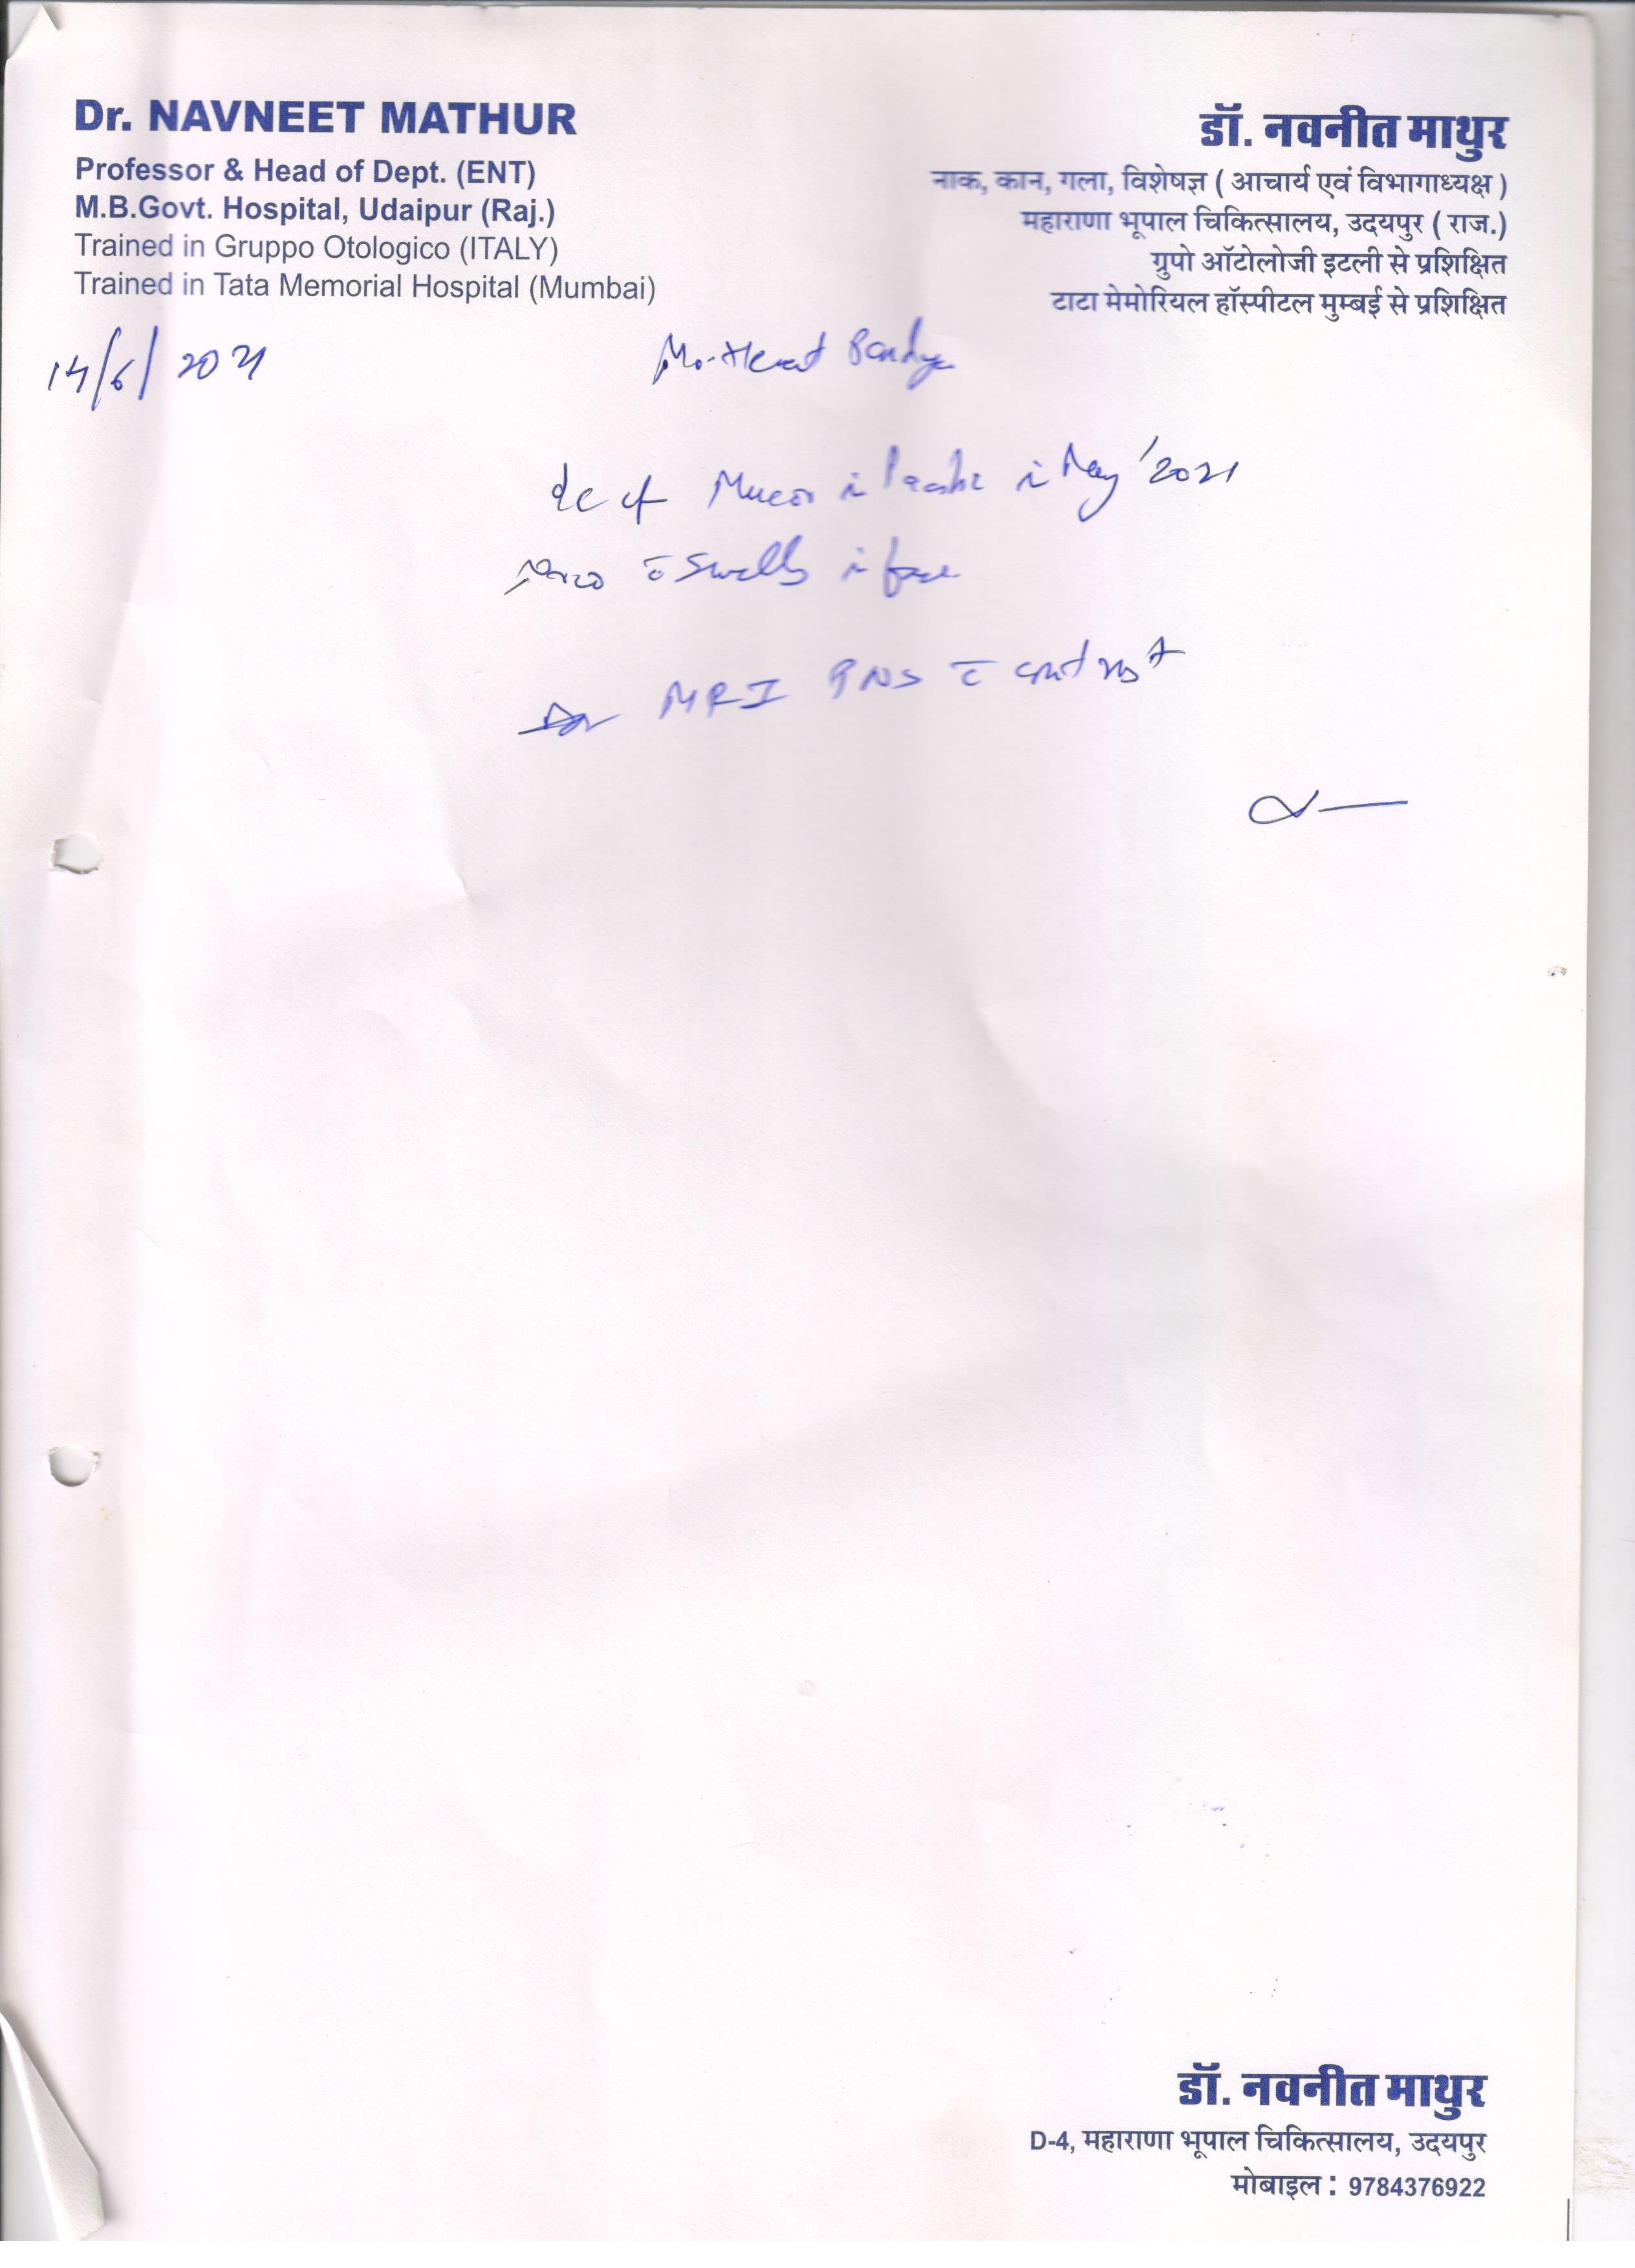 Dr. NAVNEET MATHUR
Professor & Head of Dept. (ENT)
M.B.Govt. Hospital, Udaipur (Raj.)
Trained in Gruppo Otologico (ITALY)
Trained in Tata Memorial Hospital (Mumbai)
डॉ. नवनीत माथुर
नाक, कान, गला, विशेषज्ञ ( आचार्य एवं विभागाध्यक्ष )
महाराणा भूपाल चिकित्सालय, उदयपुर ( राज.)
ग्रुपो ऑटोलोजी इटली से प्रशिक्षित
टाटा मेमोरियल हॉस्पीटल मुम्बई से प्रशिक्षित
14/6/2021
Mucor i May '2021
c̄ Swelling i face
MRI PNS c̄ contrast
डॉ. नवनीत माथुर
D-4, महाराणा भूपाल चिकित्सालय, उदयपुर
मोबाइल : 9784376922